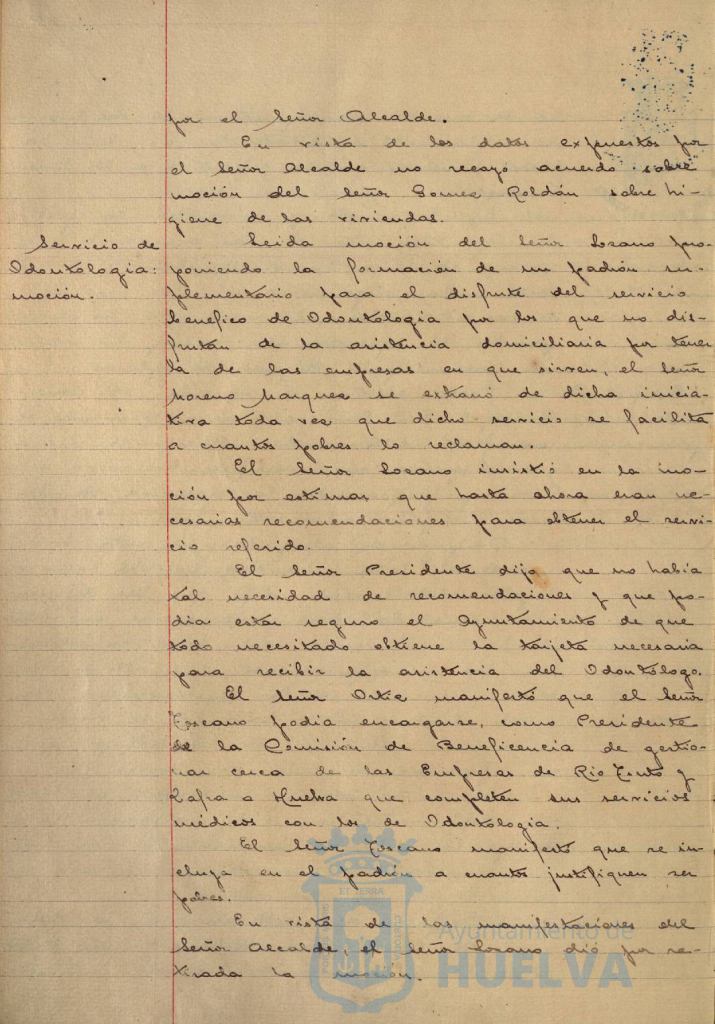 por el Señor Alcalde.
En vista de los datos expuestos por
el Señor Alcalde no recayo acuerdo sobre
moción del Señor Gomez Roldán sobre hi-
giene de las viviendas.
Servicio de
Odontologia:
moción.
Leida moción del Señor Lozano pro-
poniendo la formación de un padrón su-
plementario para el disfrute del servicio
benefico de Odontologia por los que no dis-
frutan de la asistencia domiciliaria por tener
la de las empresas en que sirven, el Señor
Moreno Marquez se extrañó de dicha iniciá-
tiva toda vez que dicho servicio se facilita
a cuantos pobres lo reclaman.
El Señor Lozano insistió en la mo-
ción por estimar que hasta ahora eran ne-
cesarias recomendaciones para obtener el servi-
cio referido.
El Señor Presidente dijo que no habia
tal necesidad de recomendaciones y que po-
dia estar seguro el Ayuntamiento de que
todo necesitado obtiene la tarjeta necesaria
para recibir la asistencia del Odontólogo.
El Señor Ortiz manifestó que el Señor
Toscano podia encargarse, como Presidente
de la Comisión de Beneficencia de gestio-
nar cerca de las Empresas de Rio Tinto y
Zafra a Huelva que completen sus servicios
médicos con los de Odontologia.
El Señor Toscano manifestó que se in-
cluya en el padrón a cuantos justifiquen ser
pobres.
En vista de las manifestaciones del
Señor Alcalde, el Señor Lozano dió por re-
tirada la moción.
Ayuntamiento de
HUELVA